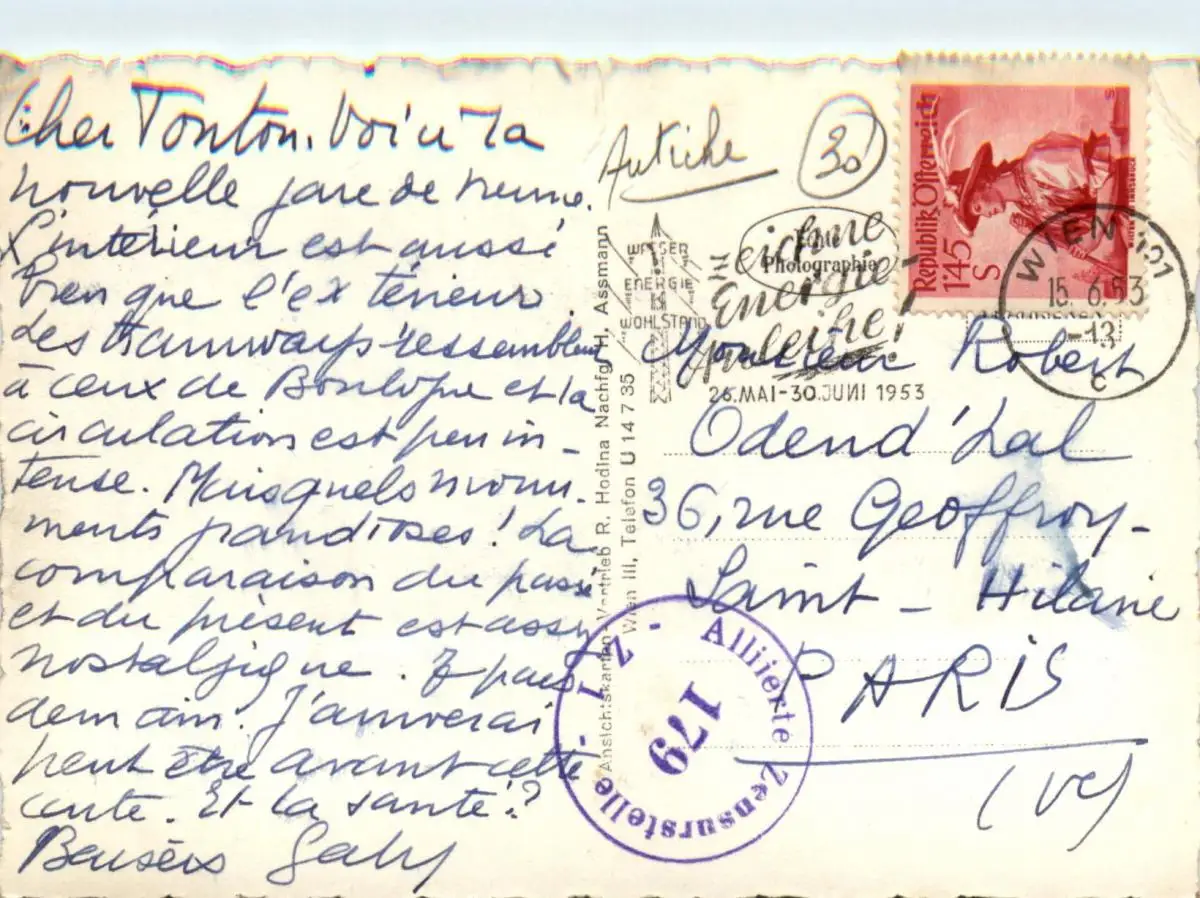 Cher Tonton. Voici la
nouvelle gare de Vienne.
L'intérieur est aussi
bien que l'extérieur
des tramways ressemblent
à ceux de Boulogne et la
circulation est peu in-
tense. Mais quels monu-
ments grandioses! La
comparaison du passé
et du présent est assez
nostalgique. Je pars
demain. J'arriverai
peut être avant cette
carte. Et la santé?
Baisers Gaby
Autriche
30
Echte
Photographie
WASSER
ENERGIE
WOHLSTAND
Zeichne
Energie-
anleihe!
26.MAI-30.JUNI 1953
Republik Österreich
1'45
S
WIEN 101
15.6.53
-13
C
Monsieur Robert
Odend'hal
36, rue Geoffroy-
Saint-Hilaire
PARIS
(Ve)
Ansichtskarten Vertrieb R. Hodina Nachfg. H. Assmann
Wien III, Telefon U 14 7 35
Alliierte Zensurstelle
179